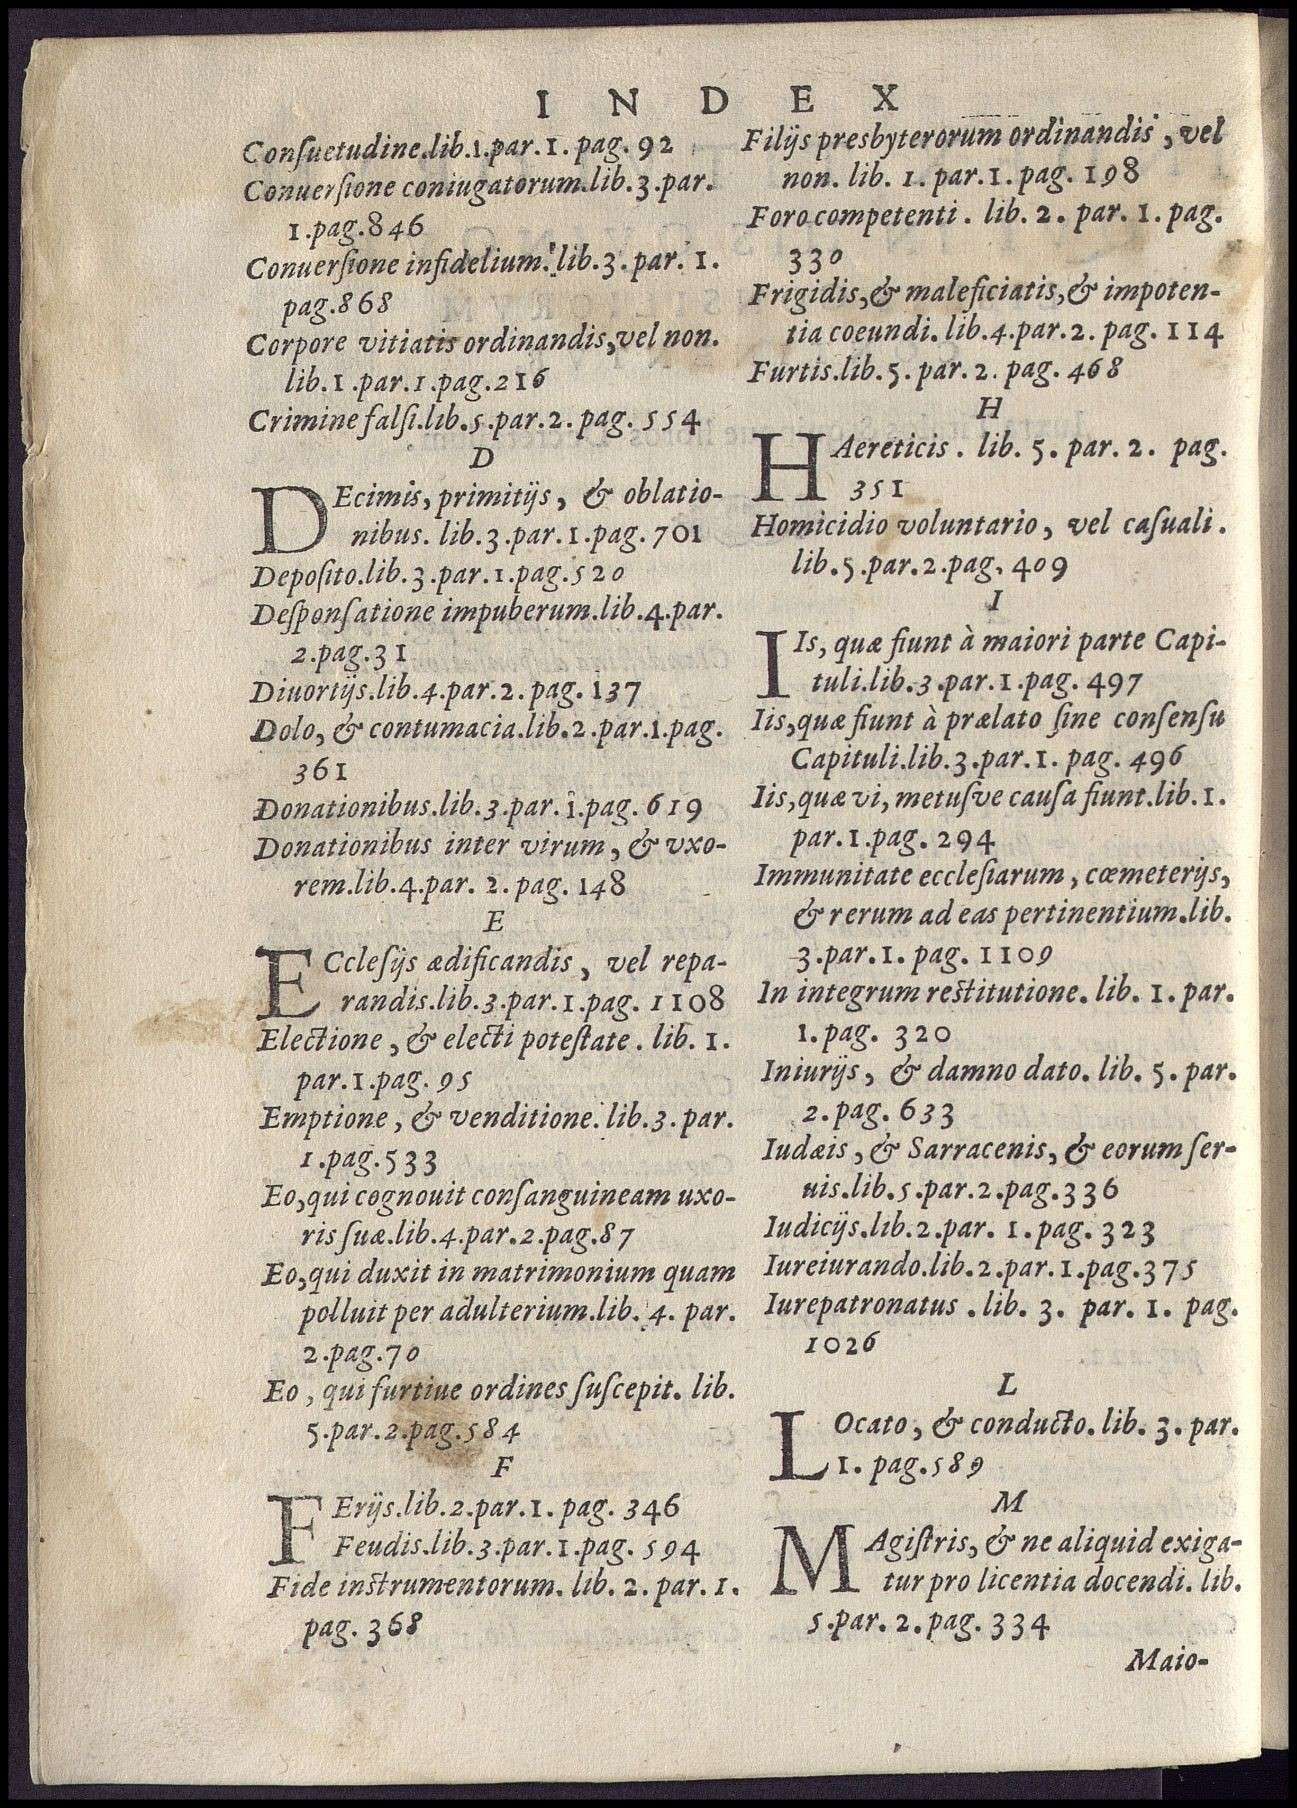 INDEX
Conſuetudine.lib.1.par.1. pag. 92
Conuerſione coniugatorum.lib.3.par.
1.pag.846
Conuerſione infidelium. lib.3. par. 1.
pag.868
Corpore vitiatis ordinandis,vel non.
lib.1.par.1.pag.216
Crimine falſi.lib.5.par.2. pag. 554
D
DEcimis, primitijs, & oblatio-
nibus. lib.3.par.1.pag.701
Depoſito.lib.3.par.1.pag.520
Deſponſatione impuberum.lib.4.par.
2.pag.31
Diuortijs.lib.4.par.2. pag. 137
Dolo, & contumacia.lib.2.par.1.pag.
361
Donationibus.lib.3.par.1.pag.619
Donationibus inter virum, & vxo-
rem.lib.4.par. 2. pag. 148
E
ECcleſijs ædificandis, vel repa-
randis.lib.3.par.1.pag. 1108
Electione, & electi poteſtate. lib. 1.
par.1.pag. 95
Emptione, & venditione. lib.3. par.
1.pag.533
Eo,qui cognouit conſanguineam uxo-
ris ſuæ.lib.4.par.2.pag.87
Eo,qui duxit in matrimonium quam
polluit per adulterium.lib. 4. par.
2.pag.70
Eo, qui furtiue ordines ſuſcepit. lib.
5.par.2.pag.584
F
FErijs.lib.2.par.1. pag. 346
Feudis.lib.3.par.1.pag. 594
Fide inſtrumentorum. lib. 2. par. 1.
pag. 368
Filijs presbyterorum ordinandis, vel
non. lib. 1. par.1. pag. 198
Foro competenti. lib. 2. par. 1. pag.
330
Frigidis,& maleficiatis,& impoten-
tia coeundi. lib.4.par.2. pag. 114
Furtis.lib.5. par.2. pag. 468
H
HAereticis. lib. 5. par. 2. pag.
351
Homicidio voluntario, vel caſuali.
lib.5.par.2.pag. 409
I
IIs, quæ fiunt à maiori parte Capi-
tuli.lib.3.par.1.pag. 497
Iis,quæ fiunt à prælato ſine conſenſu
Capituli.lib.3.par.1. pag. 496
Iis,quæ vi, metuſve cauſa fiunt.lib.1.
par.1.pag. 294
Immunitate eccleſiarum, cœmeterijs,
& rerum ad eas pertinentium.lib.
3.par.1. pag. 1109
In integrum reſtitutione. lib. 1. par.
1.pag. 320
Iniurijs, & damno dato. lib. 5. par.
2. pag. 633
Iudæis, & Sarracenis, & eorum ſer-
uis.lib.5.par.2.pag.336
Iudicijs.lib.2.par. 1. pag. 323
Iureiurando.lib.2.par.1.pag.375
Iurepatronatus. lib. 3. par. 1. pag.
1026
L
LOcato, & conducto. lib. 3. par.
1. pag.589
M
MAgiſtris, & ne aliquid exiga-
tur pro licentia docendi. lib.
5.par. 2. pag. 334
Maio-